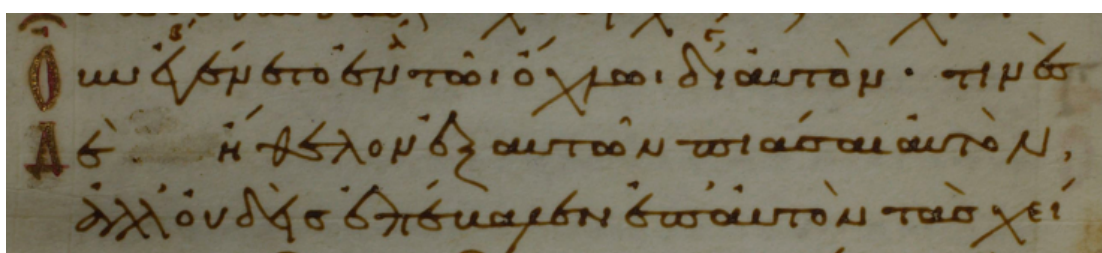 Οὖν ἐγένετο ἐν τῶι ὄχλωι δι αὐτὸν· τινὲς
Δὲ ἤθελον ἐξ αὐτῶν πιάσαι αὐτὸν,
ἀλλ οὐδεὶς ἐπέβαλεν ἐπ αὐτὸν τὰς χεῖ